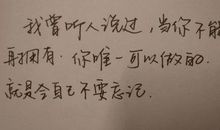 我曾听人说过，当你不能
再拥有，你唯一可以做的，
就是令自己不要忘记。